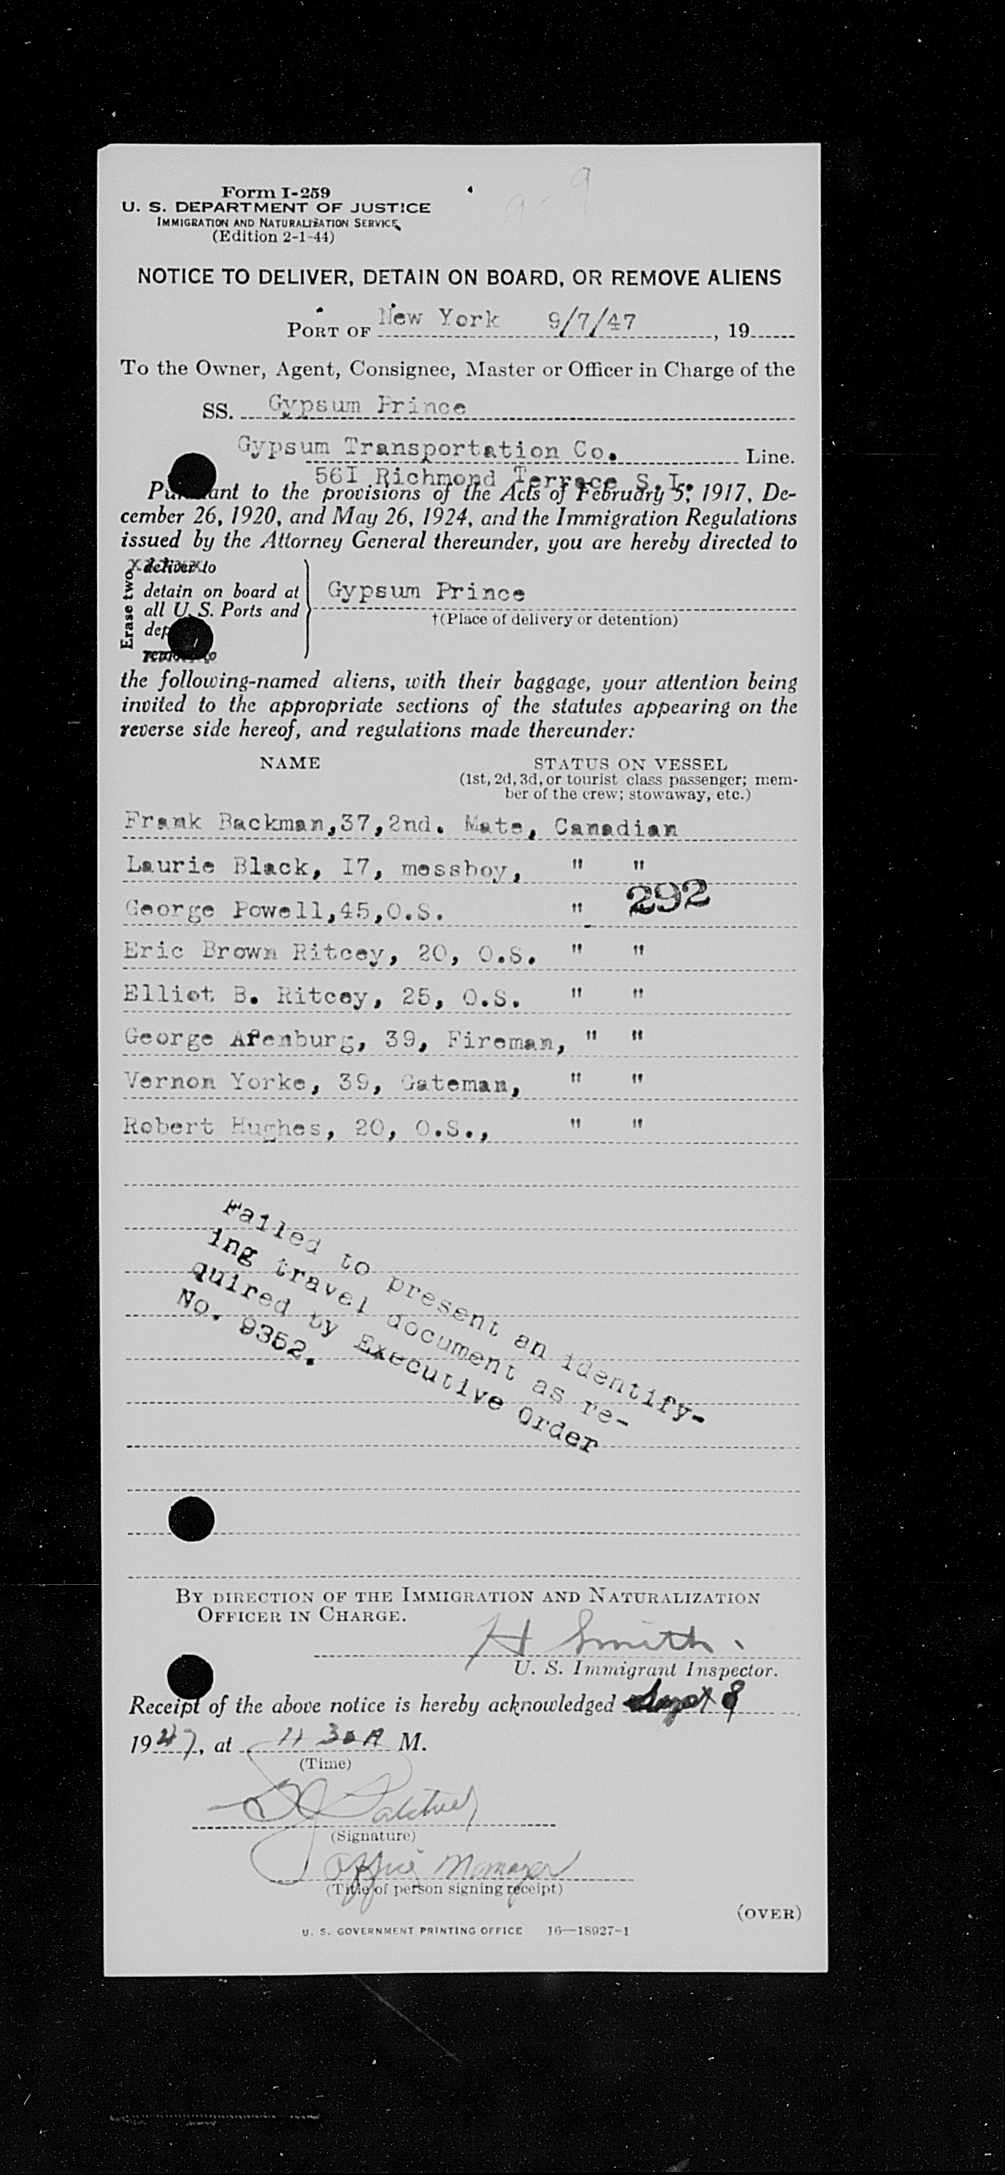 Form I-259
U. S. DEPARTMENT OF JUSTICE
IMMIGRATION AND NATURALIZATION SERVICE
(Edition 2-1-44)
NOTICE TO DELIVER, DETAIN ON BOARD, OR REMOVE ALIENS
PORT OF New York 9/7/47, 19
To the Owner, Agent, Consignee, Master or Officer in Charge of the
SS. Gypsum Prince
Gypsum Transportation Co. Line.
561 Richmond Terrace S.I.
Pursuant to the provisions of the Acts of February 5, 1917, De-
cember 26, 1920, and May 26, 1924, and the Immigration Regulations
issued by the Attorney General thereunder, you are hereby directed to
Erase two
deliver to
detain on board at
all U. S. Ports and
dep
remove to
Gypsum Prince
†(Place of delivery or detention)
the following-named aliens, with their baggage, your attention being
invited to the appropriate sections of the statutes appearing on the
reverse side hereof, and regulations made thereunder:
NAME STATUS ON VESSEL
(1st, 2d, 3d, or tourist class passenger; mem-
ber of the crew; stowaway, etc.)
Frank Backman,37,2nd. Mate, Canadian
Laurie Black, 17, messboy, " "
George Powell,45,O.S. " 292
Eric Brown Ritcey, 20, O.S. " "
Elliot B. Ritcey, 25, O.S. " "
George Afenburg, 39, Fireman, " "
Vernon Yorke, 39, Gateman, " "
Robert Hughes, 20, O.S., " "
Failed to present an identify-
ing travel document as re-
quired by Executive Order
No. 9352.
BY DIRECTION OF THE IMMIGRATION AND NATURALIZATION
OFFICER IN CHARGE.
H Smith.
U. S. Immigrant Inspector.
Receipt of the above notice is hereby acknowledged Sept 8
1947, at 11 30 A M.
(Time)
(Signature)
Office Manager
(Title of person signing receipt)
(OVER)
U. S. GOVERNMENT PRINTING OFFICE 16—18927-1